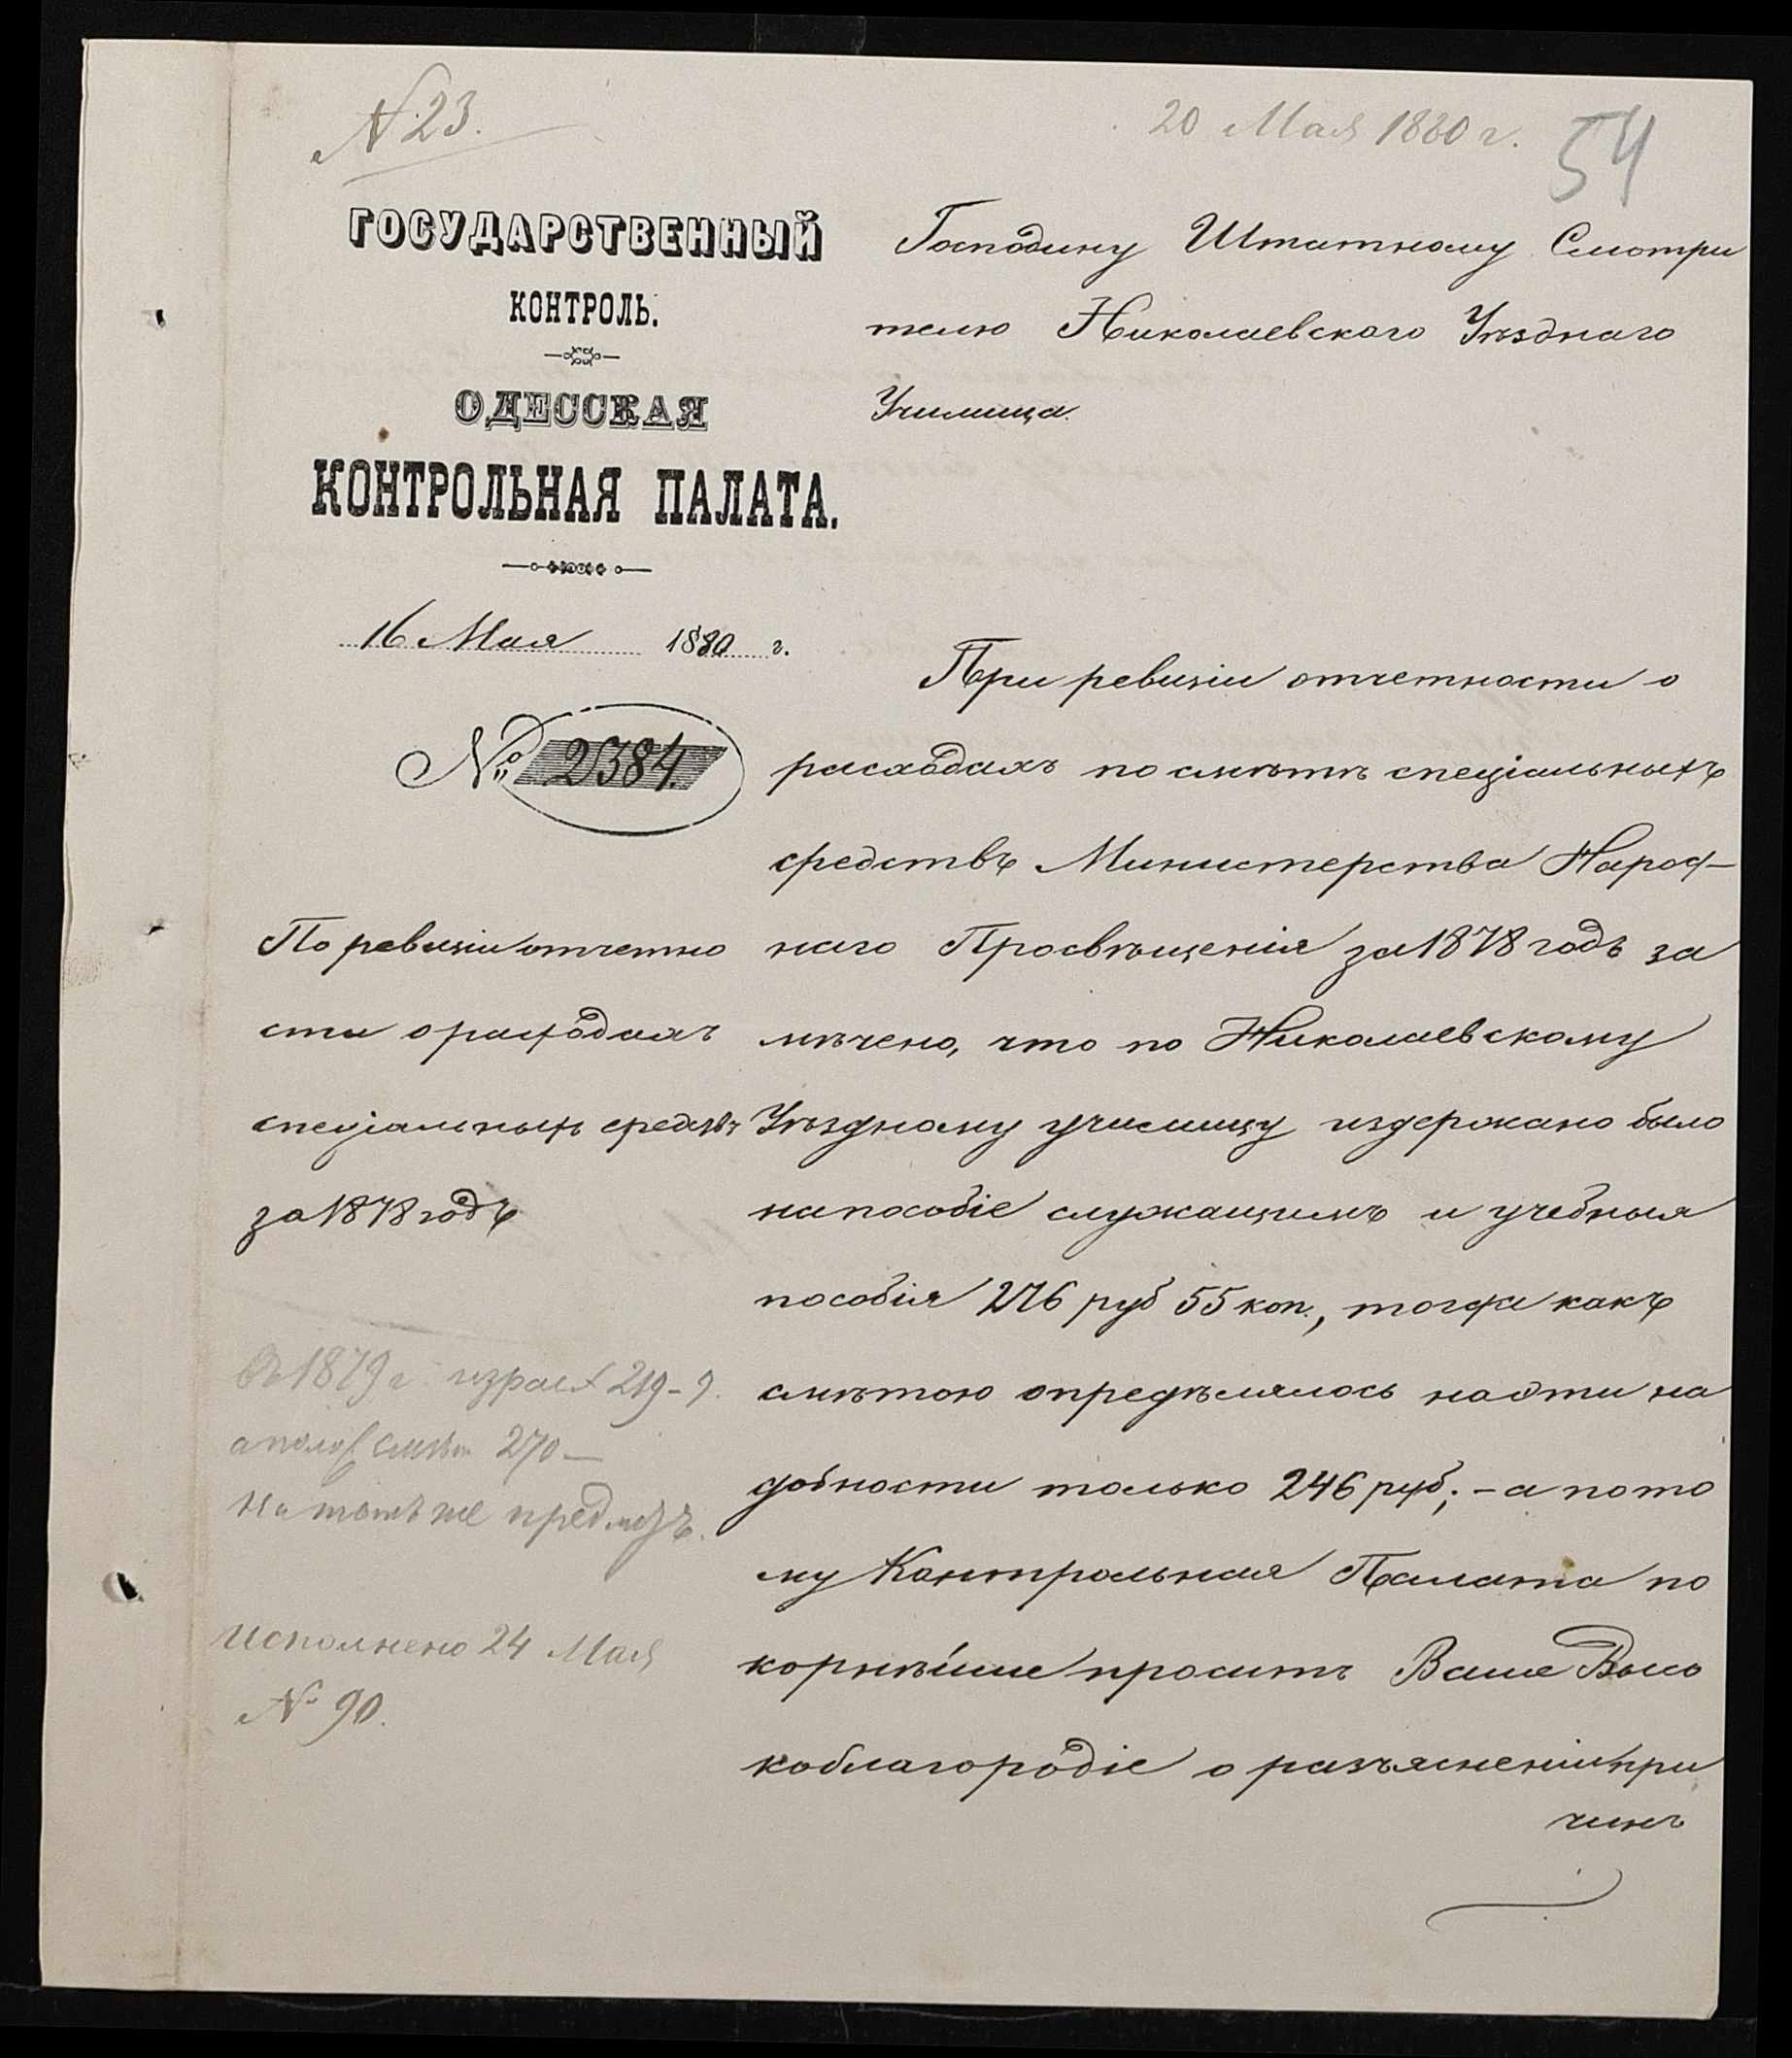 № 23.
20 Мая 1880 г.
54
ГОСУДАРСТВЕННЫЙ
КОНТРОЛЬ.
ОДЕССКАЯ
КОНТРОЛЬНАЯ ПАЛАТА.
16 Мая 1880 г.
№ 2384.
По ревизіи отчетно
сти о расходахъ
спеціальныхъ средствъ
за 1878 годъ
Въ 1879 г. израсх 219 - 9.
а полож смѣт 270 —
на тотъ же предметъ.
Исполнено 24 Мая
№ 90.
Господину Штатному Смотри
телю Николаевского Уѣзднаго
Училища.
При ревизіи отчетности о
расходахъ по смѣтѣ спеціальныхъ
средствъ Министерства Народ-
наго Просвѣщенія за 1878 годъ за
мѣчено, что по Николаевскому
Уѣздному училищу издержано было
на пособіе служащимъ и учебныя
пособія 276 руб 55 коп., тогда какъ
смѣтою опредѣлялось на эти на
добности только 246 руб; - а пото
му Контрольная Палата по
корнѣйше проситъ Ваше Высо
коблагородіе о разъясненіи при
чинъ